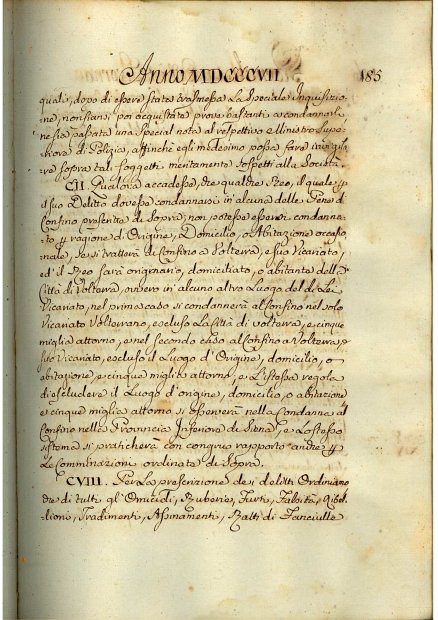 ANNO MDCCCVII 185
quali, dopo di essere stata trasmessa La Speciale Inquisizio-
ne, non siansi poi acquistate prove bastanti a condannarli
ne sia passata una special nota al respettivo Ministro Supe-
riore di Polizia, affinchè egli medesimo possa fare invigila-
re sopra tali soggetti meritamente sospetti alla Società.
CII. Qualora accadesse, che qualche Reo, il quale p
il suo Delitto dovesse condannarsi in alcuna delle Pene di
Confino prescritte di Sopra, non potesse esservi condanna-
to p ragione di Origine, Domicilio, o Abitazione occasio-
nale, Se si tratterà di Confino a Volterra, e suo Vicariato,
ed il Reo sarà originario, domiciliato, o abitante della
Città di Volterra, ovvero in alcuno altro Luogo del di Lei
Vicariato, nel primo caso si condannerà al Confino nel solo
Vicariato Volterrano, escluso La Città di Volterra, e cinque
miglia attorno, e nel secondo caso al Confino a Volterra, e
suo Vicariato, escluso il Luogo d'Origine, domicilio, o
abitazione e cinque miglia attorno, e L'istessa regola
di escludere il Luogo d'origine, domicilio, o abitazione
e cinque miglia attorno si osserverà nella Condanna al
Confino nella Provincia Inferiore di Siena, e Lo stesso
sistema si praticherà con congruo rapporto anche p
Le Comminazioni ordinate di Sopra.
CVIII. Per La prescrizione dei delitti Ordiniamo
che di tutti gl'Omicidj, Ruberie, Furti, Falsità, Ribel-
lioni, Tradimenti, Assinamenti, Ratti di Fanciulle